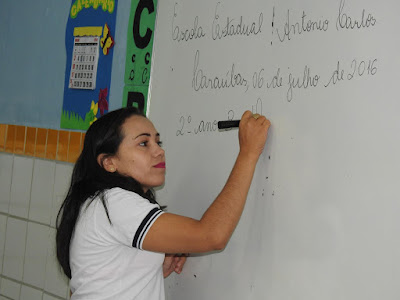 Escola Estadual Antonio Carlos
Caraúbas, 06 de julho de 2016
2º ano